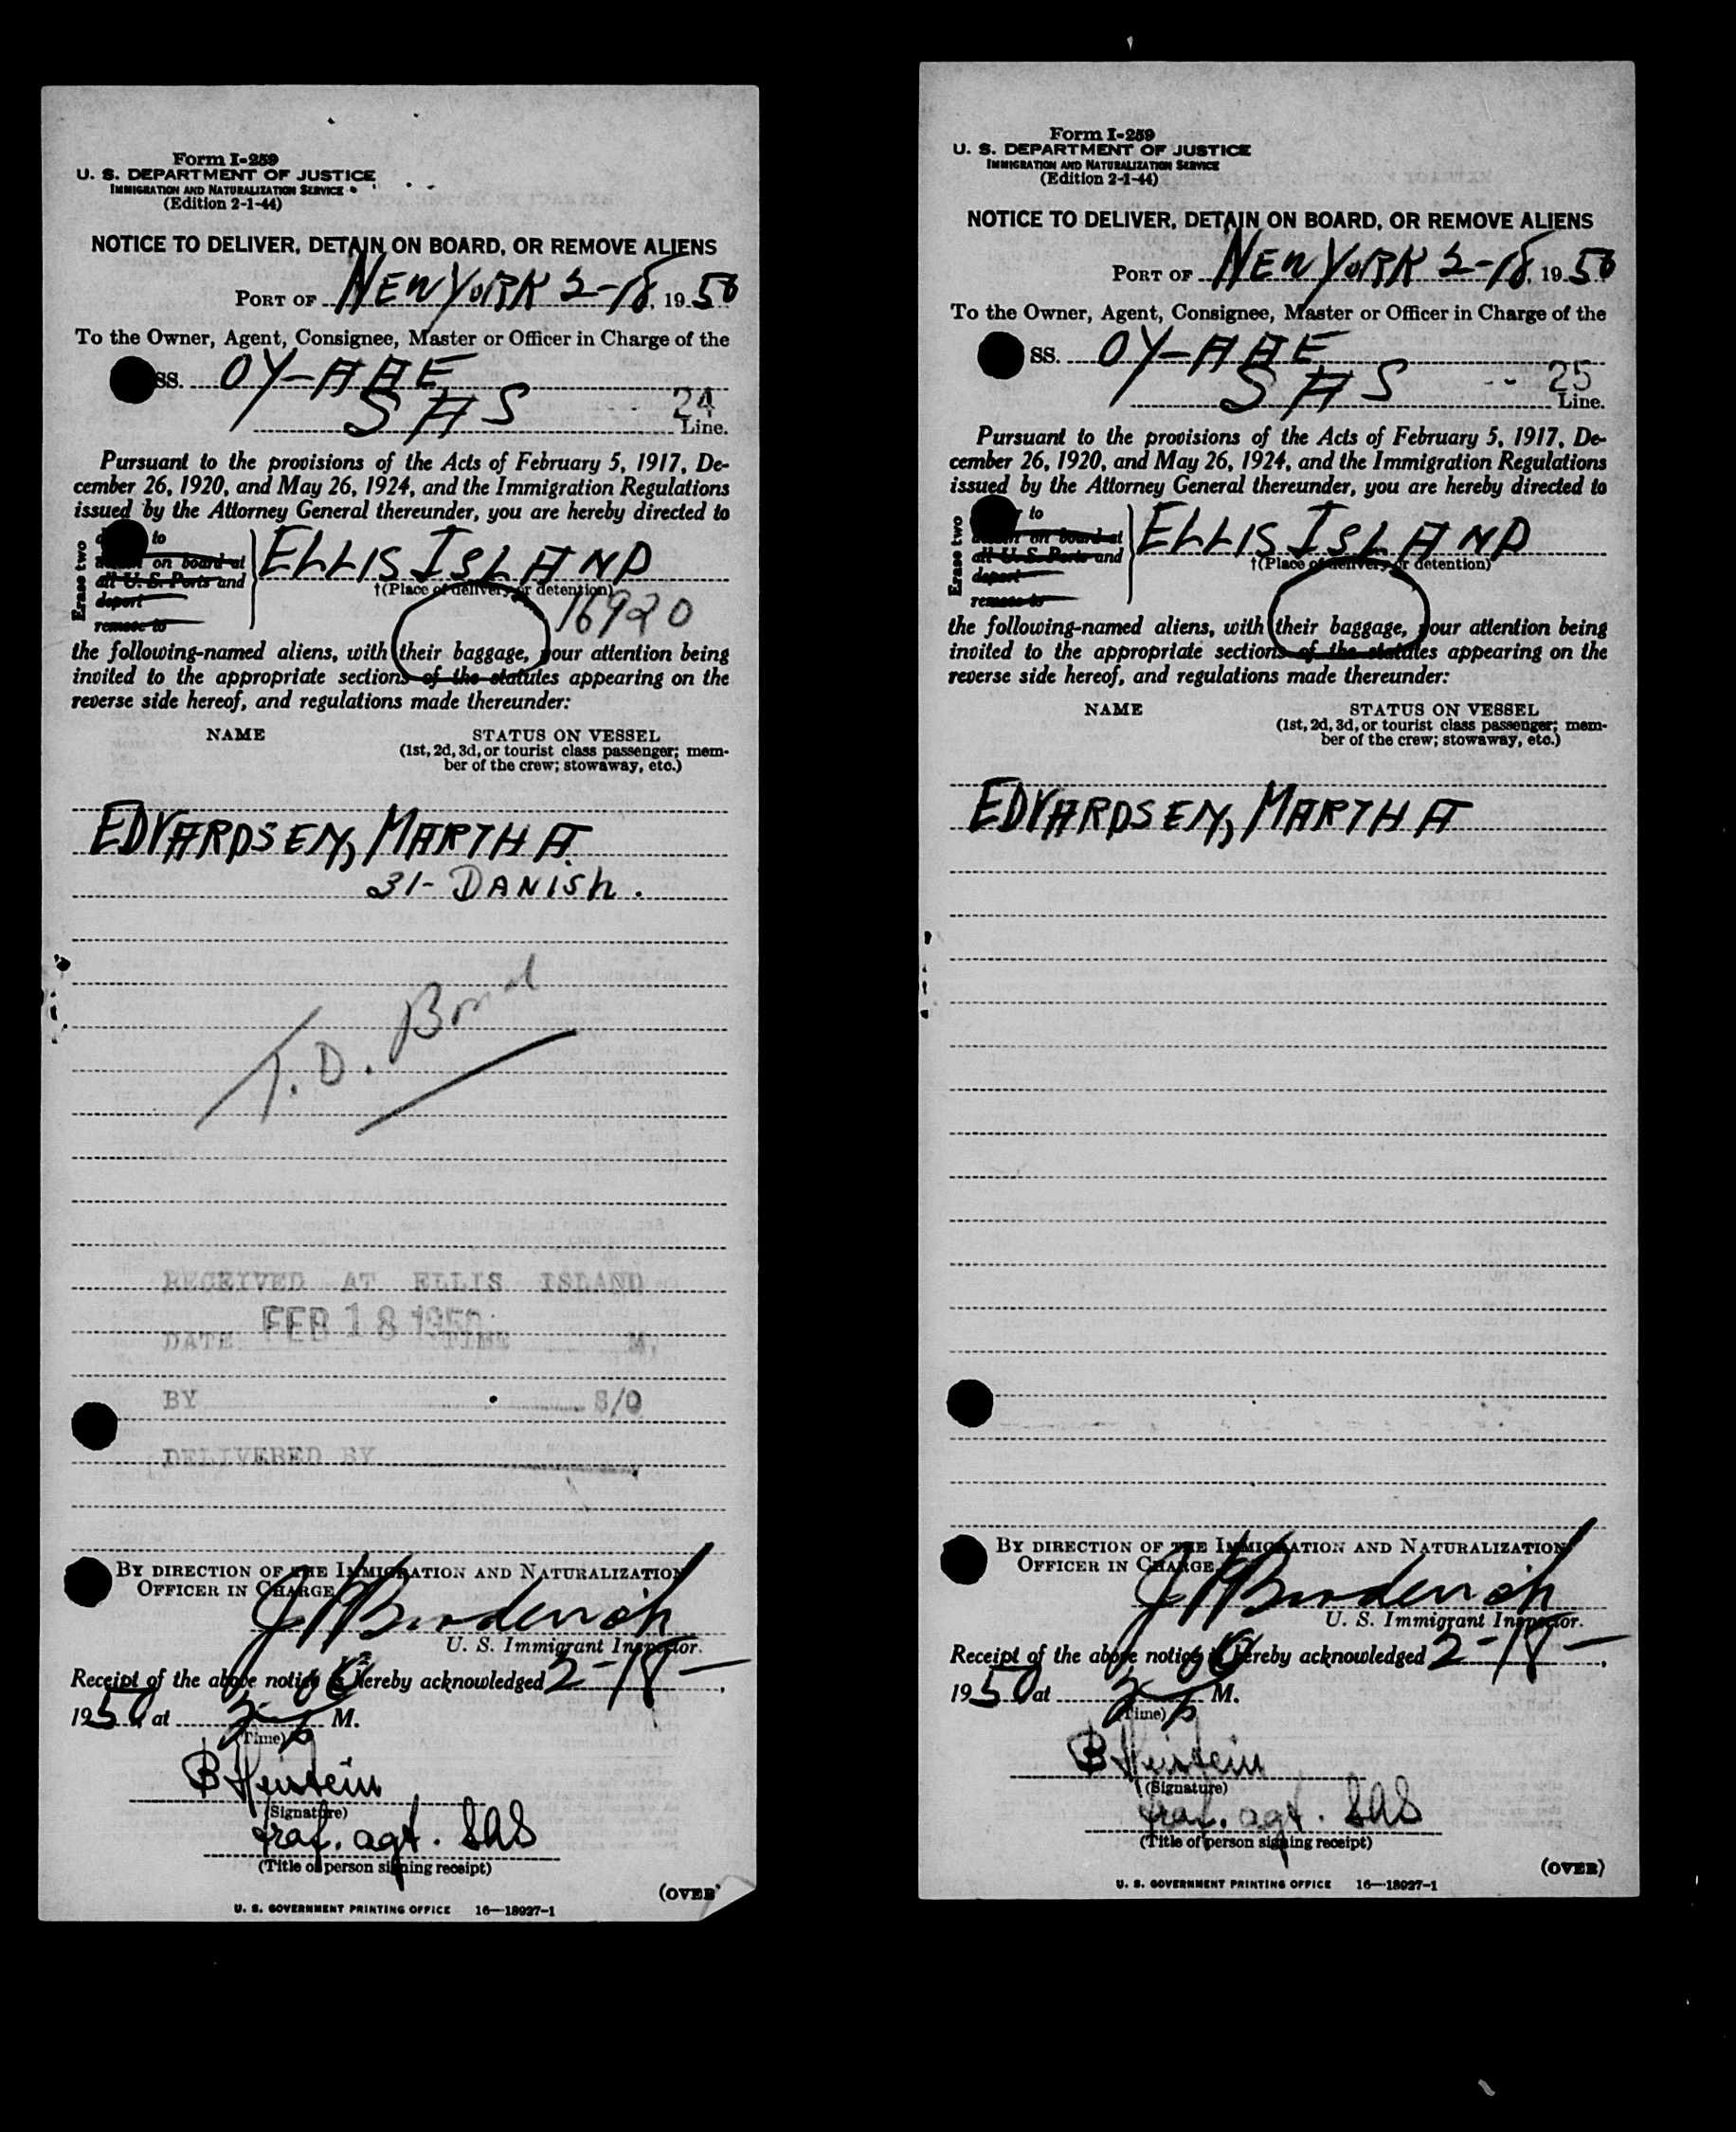 Form I-259
U. S. DEPARTMENT OF JUSTICE
IMMIGRATION AND NATURALIZATION SERVICE
(Edition 2-1-44)
NOTICE TO DELIVER, DETAIN ON BOARD, OR REMOVE ALIENS
PORT OF NEW YORK 2-18, 1950
To the Owner, Agent, Consignee, Master or Officer in Charge of the
SS. OY-AAE
SAS 24
Line.
Pursuant to the provisions of the Acts of February 5, 1917, De-
cember 26, 1920, and May 26, 1924, and the Immigration Regulations
issued by the Attorney General thereunder, you are hereby directed to
Erase two
to
on board at
all U. S. Ports and
deport
remove to
ELLIS ISLAND
†(Place of delivery or detention)
16920
the following-named aliens, with their baggage, your attention being
invited to the appropriate sections of the statutes appearing on the
reverse side hereof, and regulations made thereunder:
NAME STATUS ON VESSEL
(1st, 2d, 3d, or tourist class passenger; mem-
ber of the crew; stowaway, etc.)
EDVARDSEN, MARTHA.
31- DANISH.
T.D. Bond
RECEIVED AT ELLIS ISLAND
FEB 18 1950
DATE TIME M.
BY S/O
DELIVERED BY
BY DIRECTION OF THE IMMIGRATION AND NATURALIZATION
OFFICER IN CHARGE
U. S. Immigrant Inspector.
Receipt of the above notice is hereby acknowledged 2-18-,
1950, at M.
(Time)
(Signature)
traf. agt. SAS
(Title of person signing receipt)
(OVER)
U. S. GOVERNMENT PRINTING OFFICE 16—18927-1
Form I-259
U. S. DEPARTMENT OF JUSTICE
IMMIGRATION AND NATURALIZATION SERVICE
(Edition 2-1-44)
NOTICE TO DELIVER, DETAIN ON BOARD, OR REMOVE ALIENS
PORT OF NEW YORK 2-18, 1950
To the Owner, Agent, Consignee, Master or Officer in Charge of the
SS. OY-AAE
SAS 25
Line.
Pursuant to the provisions of the Acts of February 5, 1917, De-
cember 26, 1920, and May 26, 1924, and the Immigration Regulations
issued by the Attorney General thereunder, you are hereby directed to
Erase two
to
detain on board at
all U. S. Ports and
deport
remove to
ELLIS ISLAND
†(Place of delivery or detention)
the following-named aliens, with their baggage, your attention being
invited to the appropriate sections of the statutes appearing on the
reverse side hereof, and regulations made thereunder:
NAME STATUS ON VESSEL
(1st, 2d, 3d, or tourist class passenger; mem-
ber of the crew; stowaway, etc.)
EDVARDSEN, MARTHA
BY DIRECTION OF THE IMMIGRATION AND NATURALIZATION
OFFICER IN CHARGE
U. S. Immigrant Inspector.
Receipt of the above notice is hereby acknowledged 2-18-,
1950, at M.
(Time)
(Signature)
traf. agt. SAS
(Title of person signing receipt)
(OVER)
U. S. GOVERNMENT PRINTING OFFICE 16—18927-1